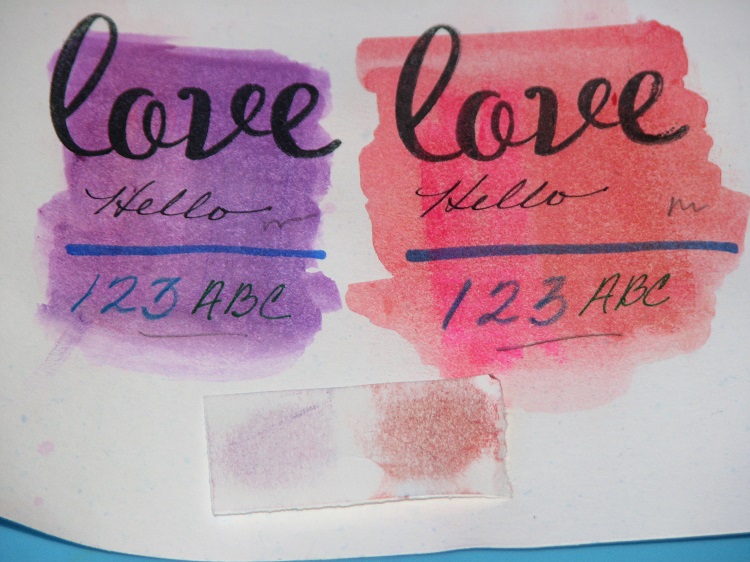 love love
Hello Hello
123 ABC 123 ABC